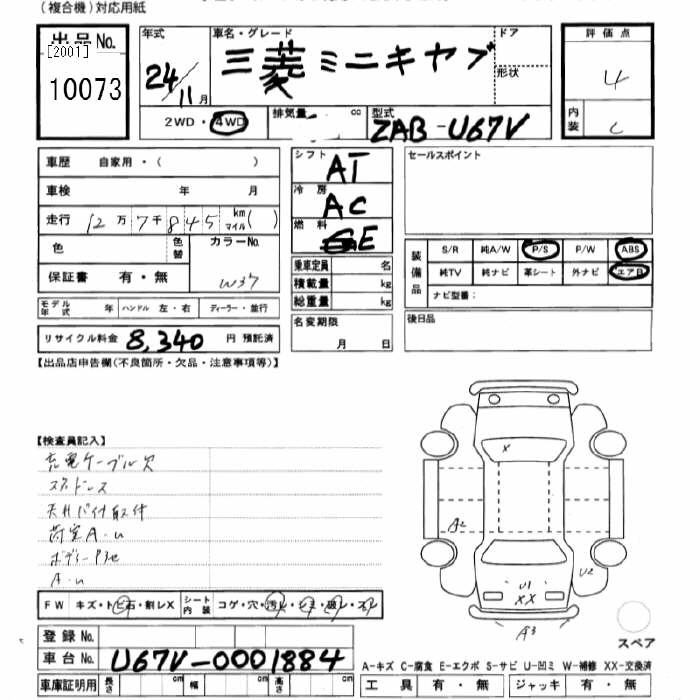 (複合機)対応用紙
出品No. [2001] 10073
年式 24/11月
車名・グレード 三菱ミニキャブ
ドア
形状
評価点 4
内装 C
2WD・4WD
排気量 cc
型式 ZAB-U67V
車歴 自家用・( )
車検 年 月
走行 12万7千845 km マイル( )
色 色替 カラーNo. W37
保証書 有・無
モデル年式 年 ハンドル 左・右 ディーラー・並行
リサイクル料金 8,340 円 預託済
シフト AT
冷房 AC
燃料 E
乗車定員 名
積載量 kg
総重量 kg
名変期限 月 日
セールスポイント
装備品 S/R 純A/W P/S P/W ABS
純TV 純ナビ 革シート 外ナビ エアB
ナビ型番:
後日品
【出品店申告欄(不良箇所・欠品・注意事項等)】
【検査員記入】
充電ケーブル欠
天井バイザ取付
荷室A・U
A・U
FW キズ・トビ石・割レX シート内装 コゲ・穴・汚レ・シミ・破レ・スレ
登録No.
車台No. U67V-0001884
車庫証明用 長さ cm 幅 cm 高さ cm
X
A2
U2
U1
XX
A3
スペア
A-キズ C-腐食 E-エクボ S-サビ U-凹ミ W-補修 XX-交換済
工具 有・無 ジャッキ 有・無